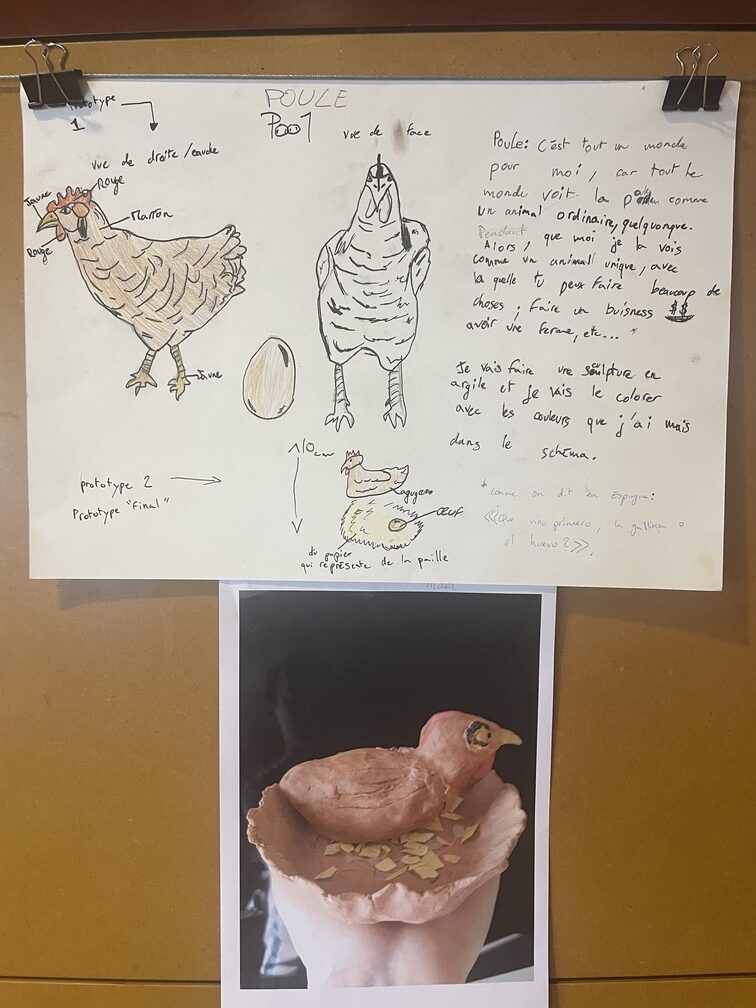 Prototype
1
POULE
Poo1
vue de face
vue de droite/gauche
Jaune
Rouge
Marron
Rouge
Jaune
Poule: C'est tout un monde
pour moi, car tout le
monde voit la comme
un animal ordinaire, quelquonque.
Pendant
Alors, que moi je la vois
comme un animall unique, avec
la quelle tu peux faire beaucoup de
choses; faire un buisness $$
avoir une ferme, etc... *
Je vais faire une sculpture en
argile et je vais le colorer
avec les couleurs que j'ai mais
dans le schéma.
* comme on dit en Espagne:
«¿Que vino primero, la gallina o
el huevo?».
prototype 2
Prototype "final"
10cm
œuf
du papier
qui représente de la paille